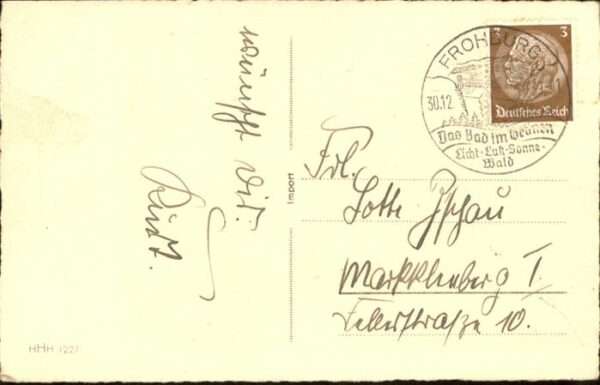 wünscht Dir
Kurt.
Import
HHH 1227
FROHBURG
30.12
Das Bad im Grünen
Licht-Luft-Sonne-
Wald
3 3
Deutsches Reich
Frl.
Lotte Zschau
Markkleeberg I.
10.